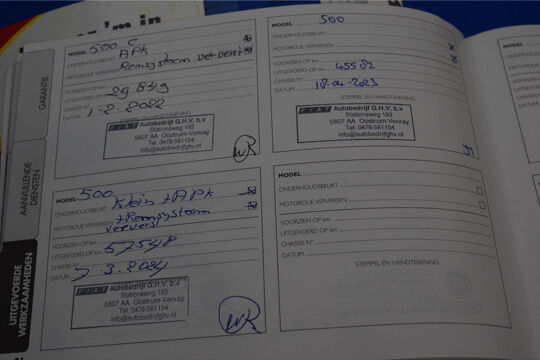 GARANTIE
AANVULLENDE
DIENSTEN
UITGEVOERDE
WERKZAAMHEDEN
MODEL 500 C
ONDERHOUDSBEURT APK
MOTOROLIE VERVERSEN Remsysteem ververst
VOORZIEN OP km
UITGEVOERD OP km 29849
CHASSIS N°
DATUM 1-2-2022
STEMPEL EN HANDTEKENING
FIAT Autobedrijf G.H.V. b.v
Stationsweg 183
5807 AA Oostrum-Venray
Tel. 0478-581154
info@autobedrijfghv.nl
MODEL 500
ONDERHOUDSBEURT
MOTOROLIE VERVERSEN
VOORZIEN OP km
UITGEVOERD OP km 45582
CHASSIS N°
DATUM 18-04-2023
STEMPEL EN HANDTEKENING
FIAT Autobedrijf G.H.V. b.v
Stationsweg 183
5807 AA Oostrum-Venray
Tel. 0478-581154
info@autobedrijfghv.nl
MODEL 500
ONDERHOUDSBEURT Klein + APK
MOTOROLIE VERVERSEN + Remsysteem
ververst
VOORZIEN OP km
UITGEVOERD OP km 57548
CHASSIS N°
DATUM 7-3-2024
FIAT Autobedrijf G.H.V. b.v
Stationsweg 183
5807 AA Oostrum-Venray
Tel. 0478-581154
info@autobedrijfghv.nl
MODEL
ONDERHOUDSBEURT
MOTOROLIE VERVERSEN
VOORZIEN OP km
UITGEVOERD OP km
CHASSIS N°
DATUM
STEMPEL EN HANDTEKENING